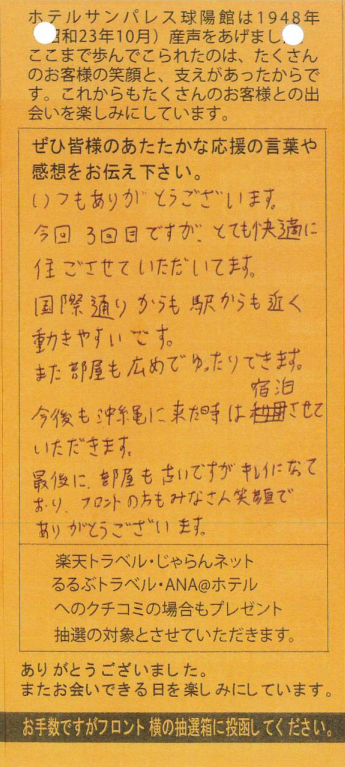 ホテルサンパレス球陽館は1948年
昭和23年10月）産声をあげまし
ここまで歩んでこられたのは、たくさん
のお客様の笑顔と、支えがあったからで
す。これからもたくさんのお客様との出
会いを楽しみにしています。
ぜひ皆様のあたたかな応援の言葉や
感想をお伝え下さい。
いつもありがとうございます。
今回3回目ですが、とても快適に
住ごさせていただいてます。
国際通りからも駅からも近く
動きやすいです。
また部屋も広めでゆったりできます。
宿泊
今後も沖縄に来た時は利用させて
いただきます。
最後に、部屋も古いですがキレイになって
おり、フロントの方もみなさん笑顔で
ありがとうございます。
楽天トラベル・じゃらんネット
るるぶトラベル・ANA@ホテル
へのクチコミの場合もプレゼント
抽選の対象とさせていただきます。
ありがとうございました。
またお会いできる日を楽しみにしています。
お手数ですがフロント横の抽選箱に投函してください。